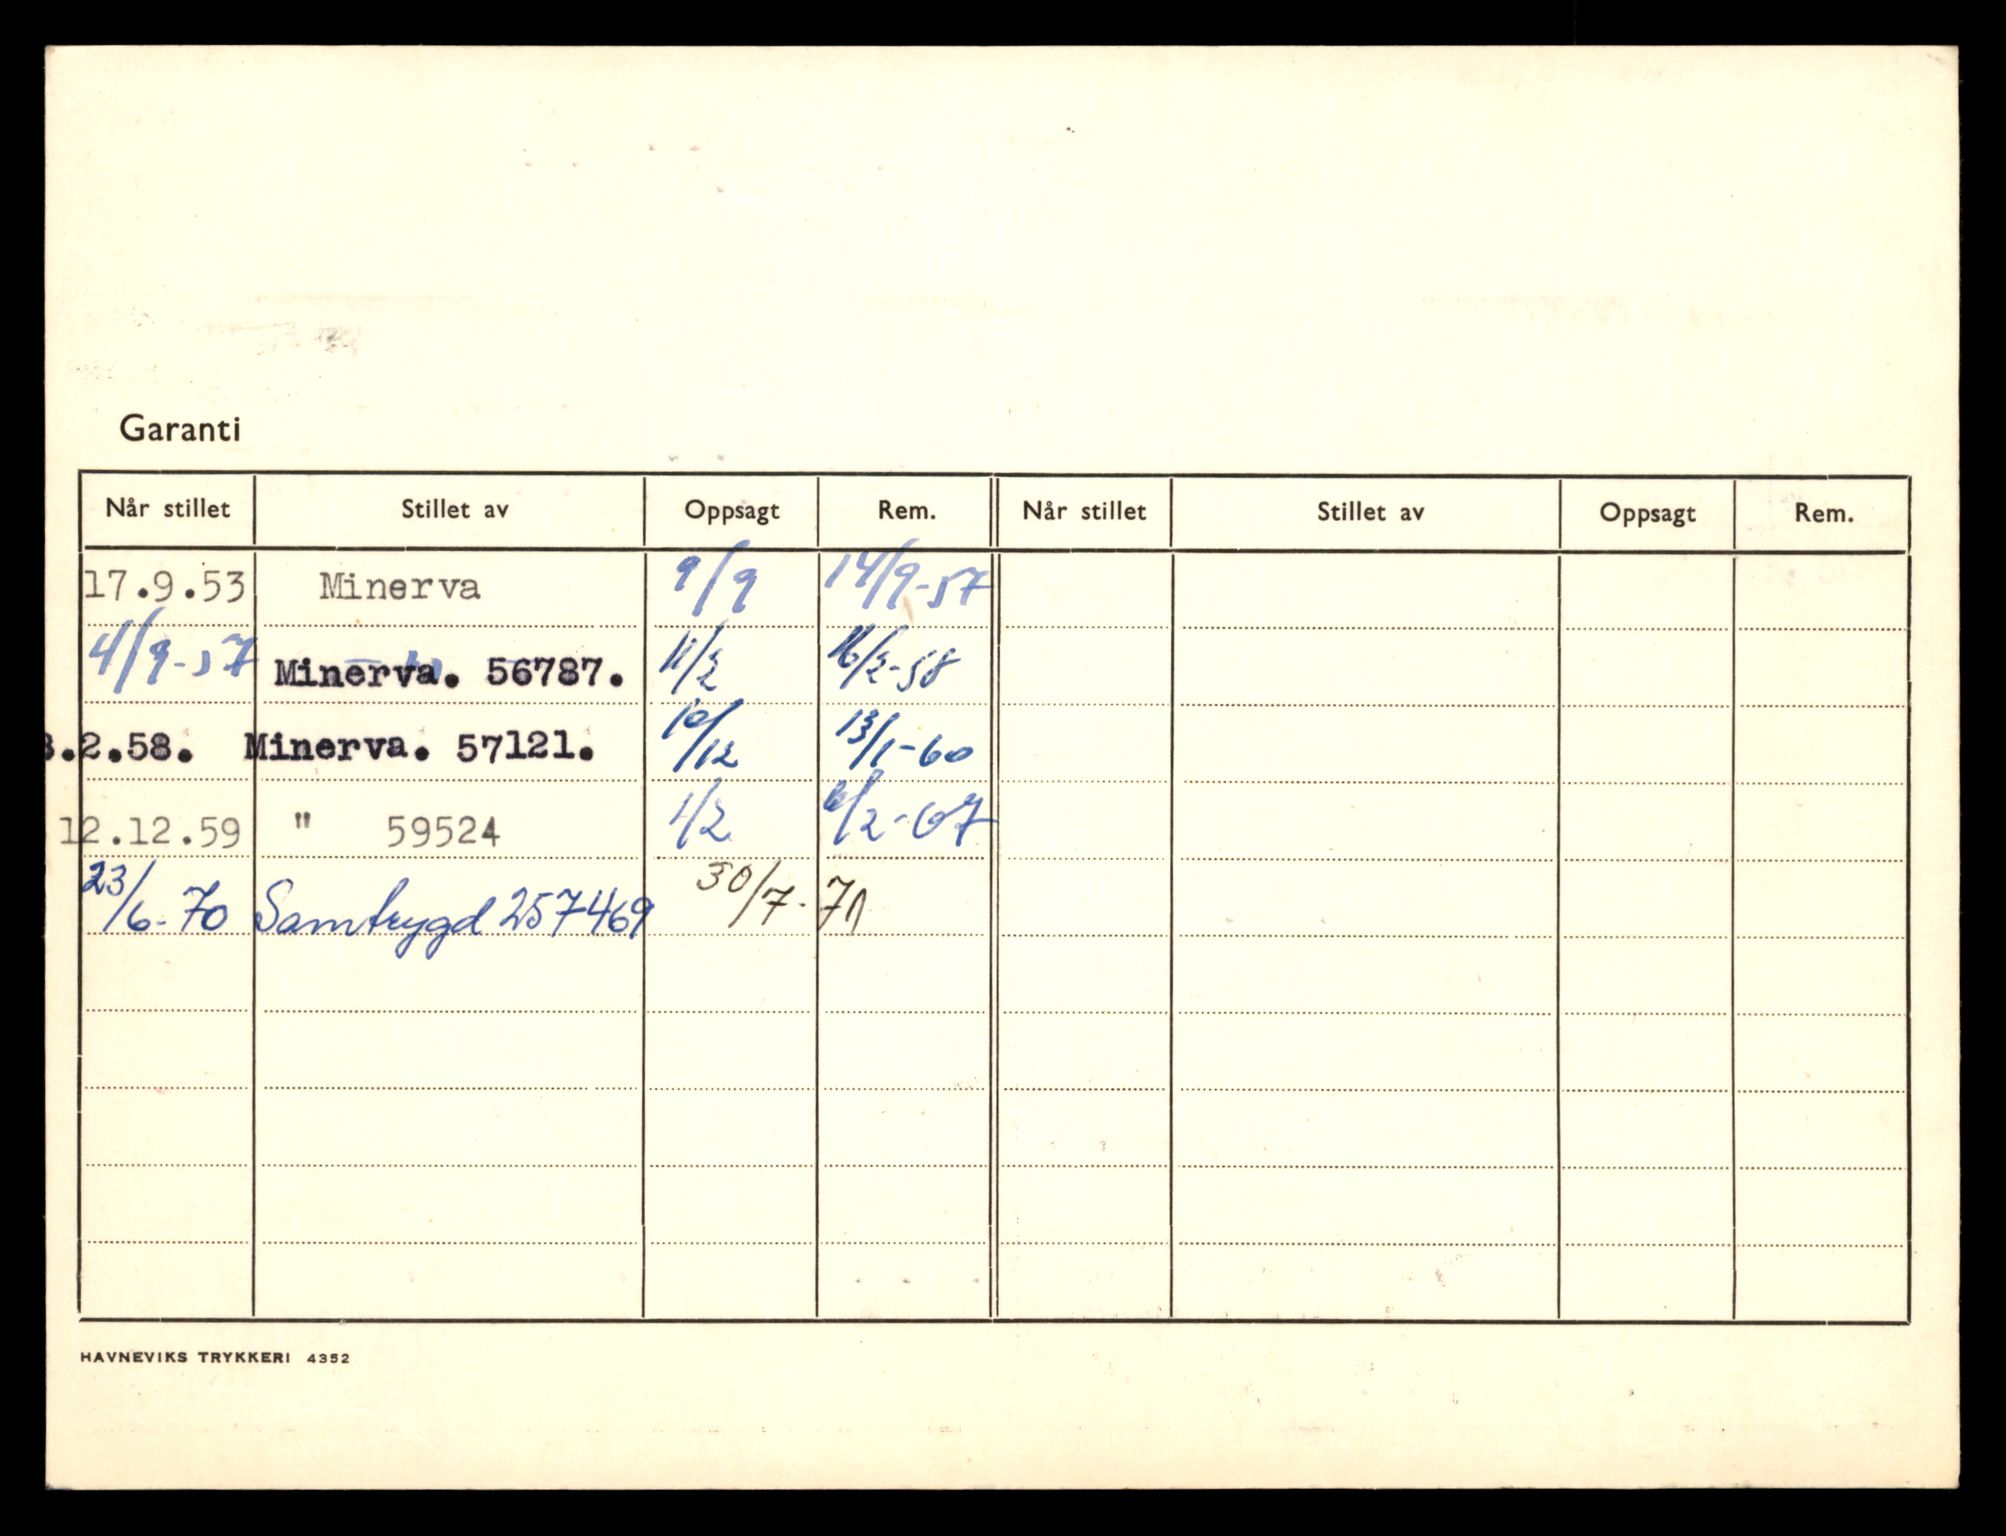 Garanti
Når stillet Stillet av Oppsagt Rem. Når stillet Stillet av Oppsagt Rem.
17.9.53 Minerva 9/9 14/9-57
4/9-57 Minerva. 56787. 11/2 16/2-58
.2.58. Minerva. 57121. 10/12 13/1-60
12.12.59 " 59524 1/2 6/2-67
23/6-70 Samtrygd 257469 30/7-71
HAVNEVIKS TRYKKERI 4352